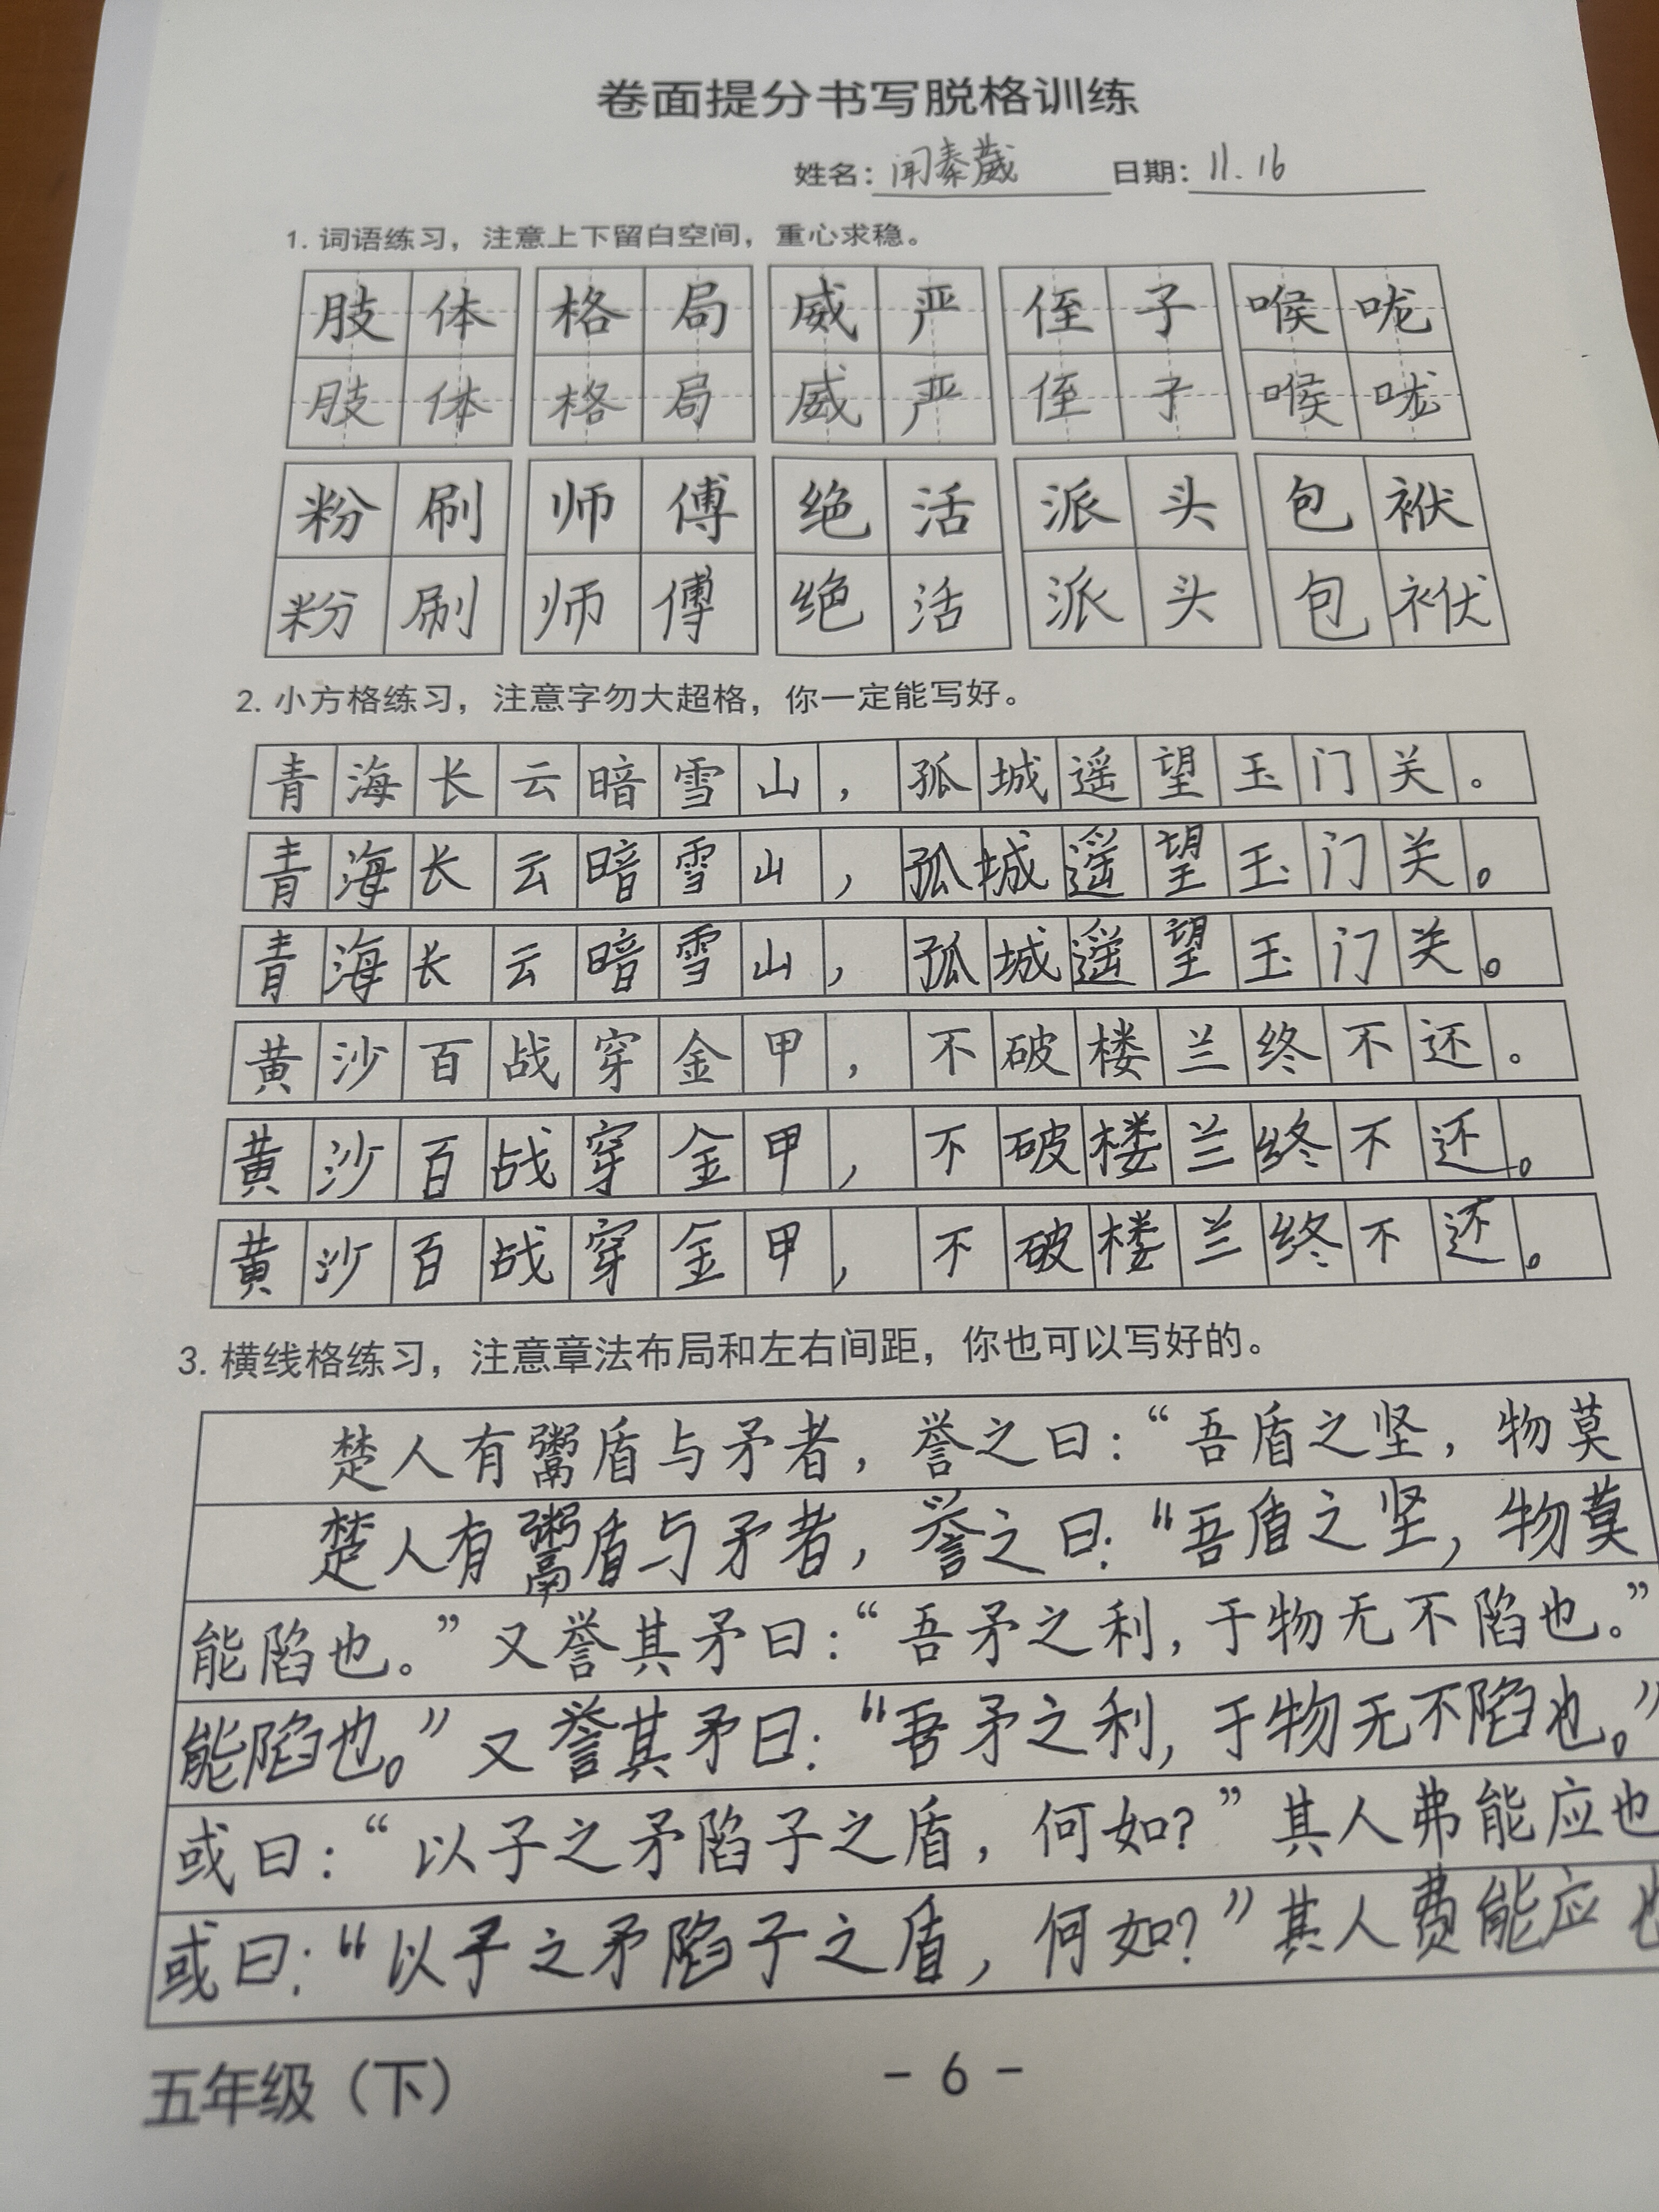 卷面提分书写脱格训练
姓名：闻秦葳 日期：11.16
1. 词语练习，注意上下留白空间，重心求稳。
肢体 格局 威严 侄子 喉咙
肢体 格局 威严 侄子 喉咙
粉刷 师傅 绝活 派头 包袱
粉刷 师傅 绝活 派头 包袱
2. 小方格练习，注意字勿大超格，你一定能写好。
青海长云暗雪山，孤城遥望玉门关。
青海长云暗雪山，孤城遥望玉门关。
青海长云暗雪山，孤城遥望玉门关。
黄沙百战穿金甲，不破楼兰终不还。
黄沙百战穿金甲，不破楼兰终不还。
黄沙百战穿金甲，不破楼兰终不还。
3. 横线格练习，注意章法布局和左右间距，你也可以写好的。
楚人有鬻盾与矛者，誉之曰：“吾盾之坚，物莫
楚人有鬻盾与矛者，誉之曰：“吾盾之坚，物莫
能陷也。”又誉其矛曰：“吾矛之利，于物无不陷也。”
能陷也。”又誉其矛曰：“吾矛之利，于物无不陷也。”
或曰：“以子之矛陷子之盾，何如？”其人弗能应也
或曰：“以子之矛陷子之盾，何如？”其人费能应也
五年级（下）
- 6 -